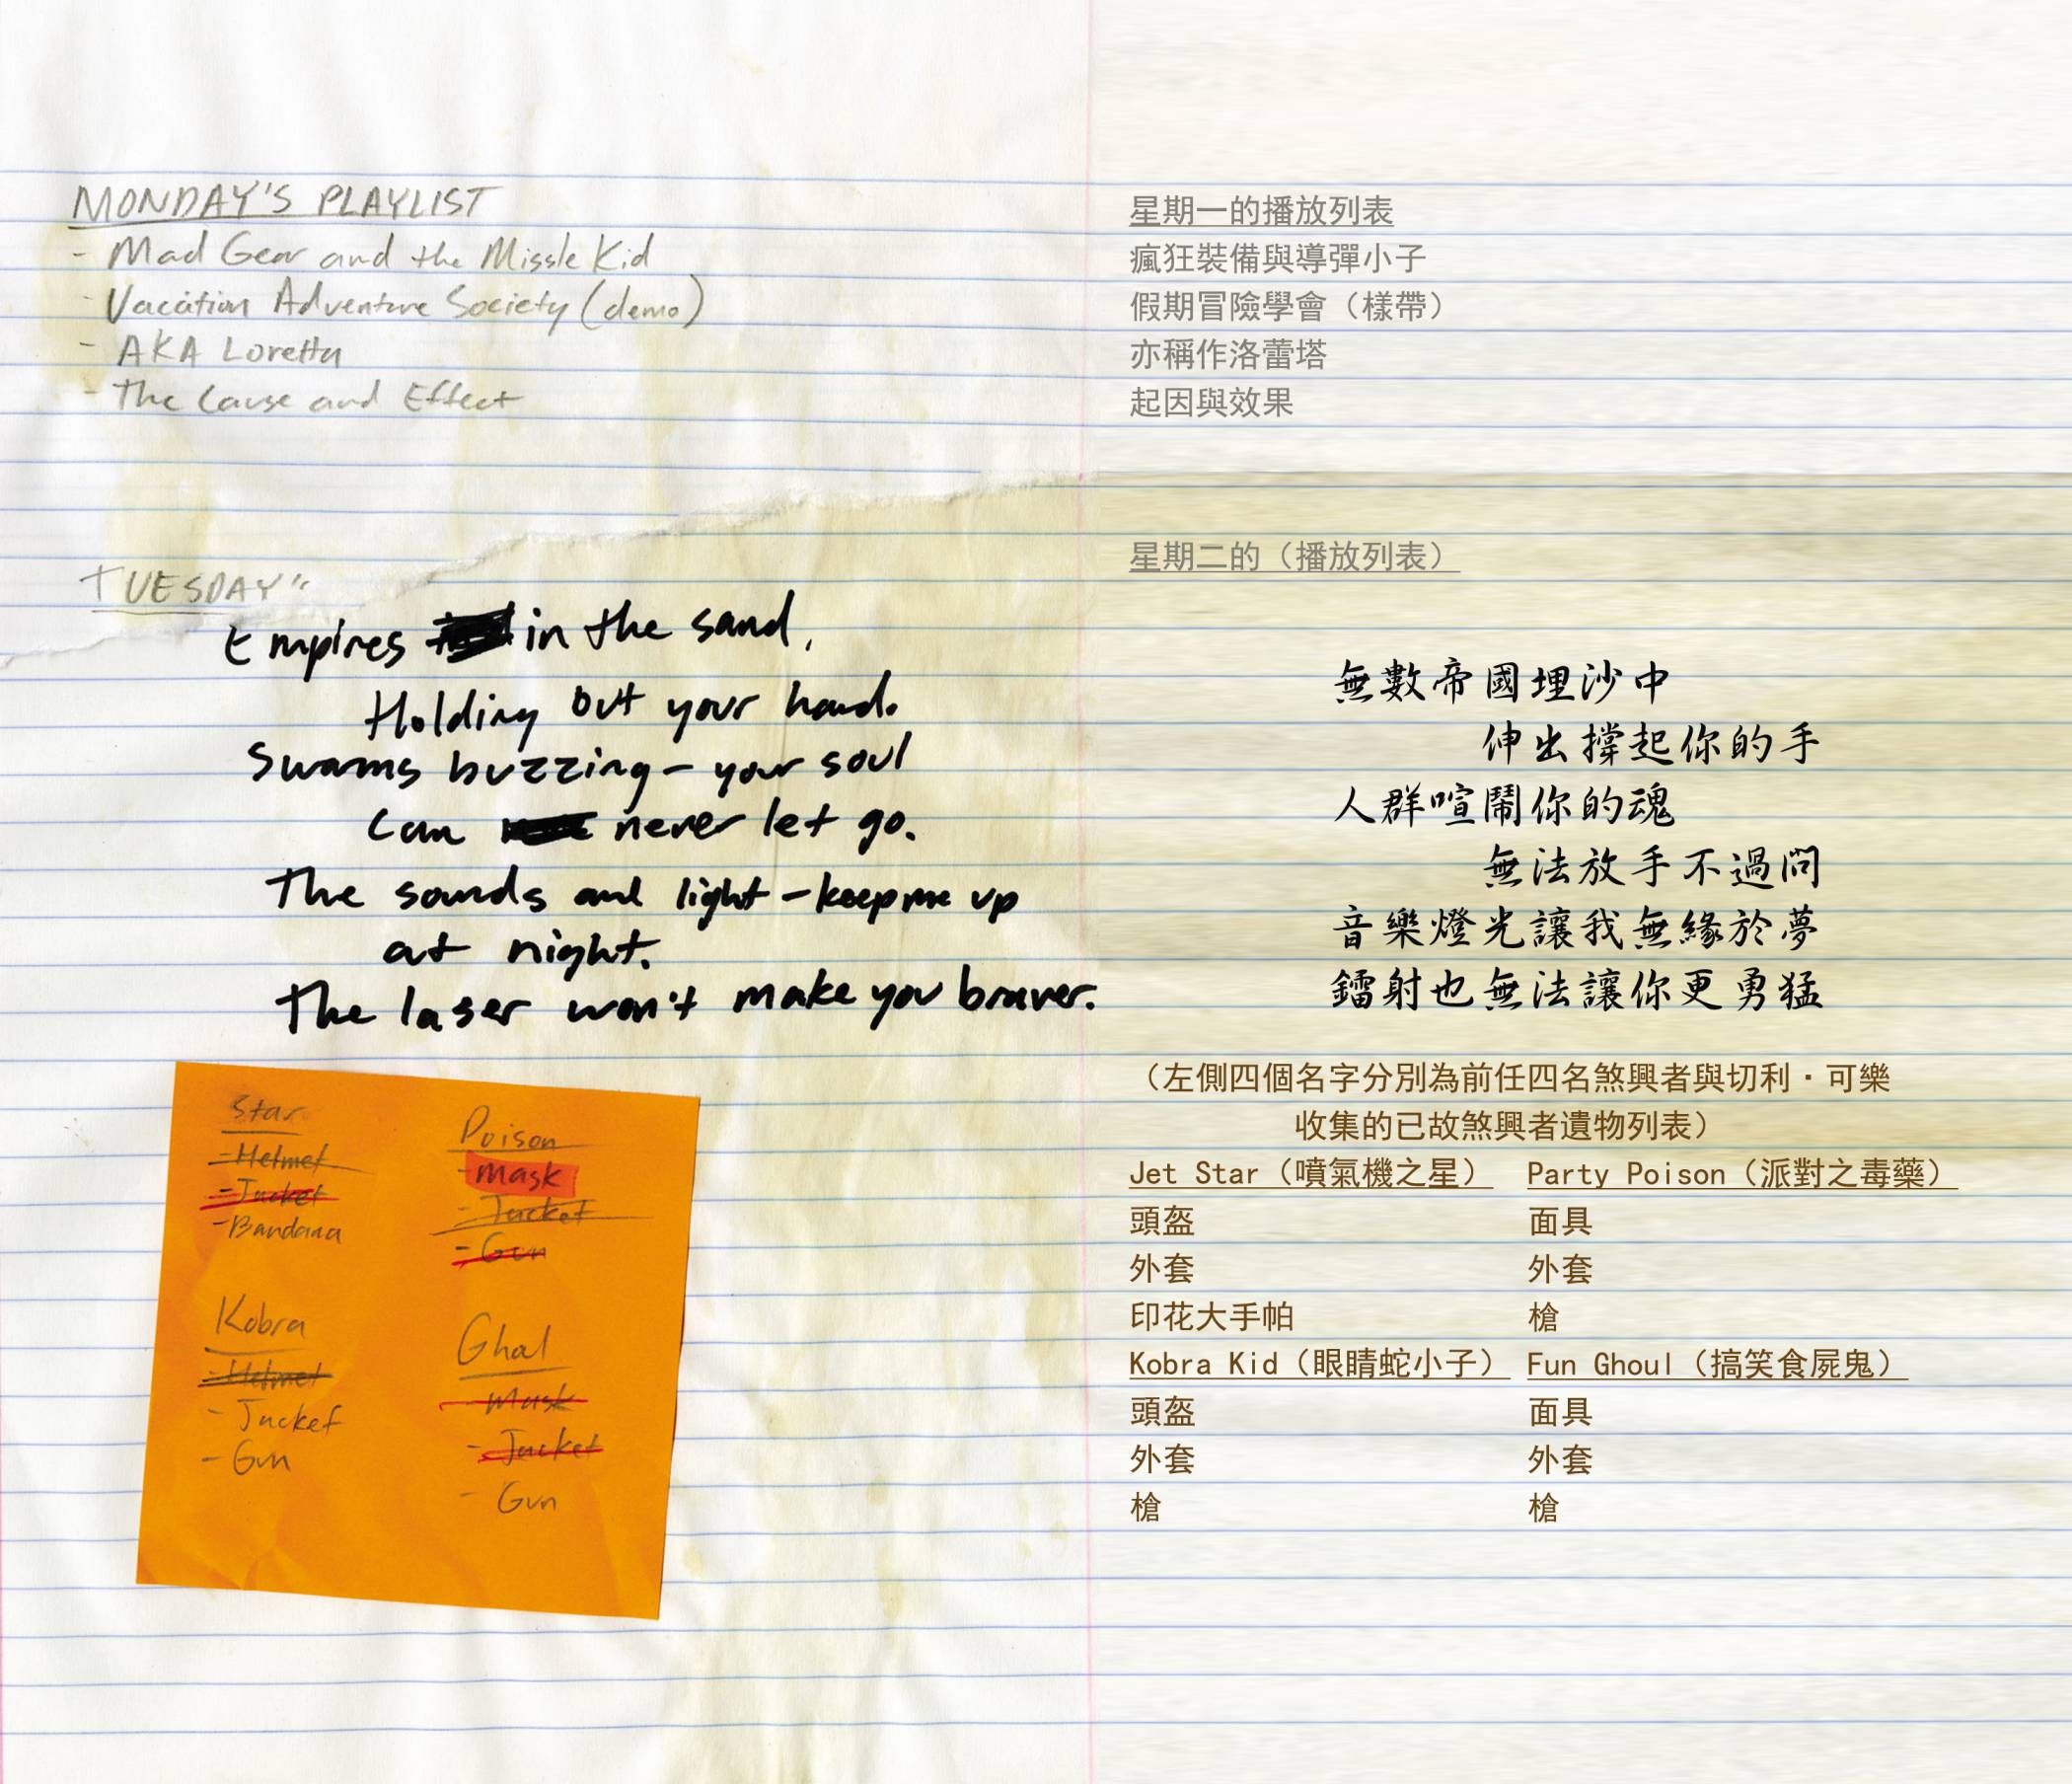 MONDAY'S PLAYLIST
- Mad Gear and the Missle Kid
- Vacation Adventure Society (demo)
- AKA Loretta
- The Cause and Effect
TUESDAY'S
Empires in the sand,
Holding out your hand.
Swarms buzzing - your soul
can never let go.
The sounds and light - keep me up
at night.
The laser won't make you braver.
Star
- Helmet
- Jacket
- Bandana
Poison
- Mask
- Jacket
- Gun
Kobra
- Helmet
- Jacket
- Gun
Ghol
- Mask
- Jacket
- Gun
星期一的播放列表
瘋狂裝備與導彈小子
假期冒險學會（樣帶）
亦稱作洛蕾塔
起因與效果
星期二的（播放列表）
無數帝國埋沙中
伸出撐起你的手
人群喧鬧你的魂
無法放手不過問
音樂燈光讓我無緣於夢
鐳射也無法讓你更勇猛
（左側四個名字分別為前任四名煞興者與切利·可樂
收集的已故煞興者遺物列表）
Jet Star（噴氣機之星） Party Poison（派對之毒藥）
頭盔 面具
外套 外套
印花大手帕 槍
Kobra Kid（眼睛蛇小子） Fun Ghoul（搞笑食屍鬼）
頭盔 面具
外套 外套
槍 槍